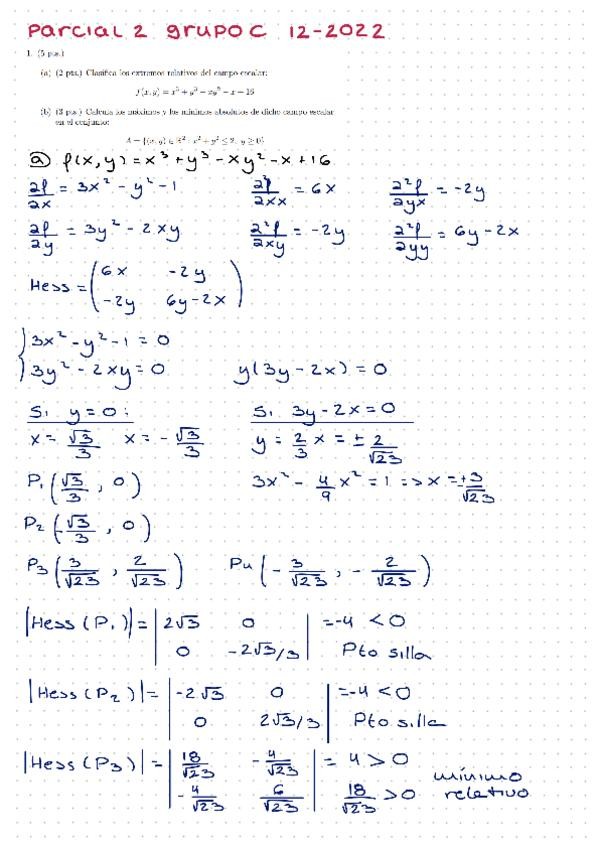 Parcial 2 grupo C 12-2022
1. (5 pts.)
(a) (2 pts.) Clasifica los extremos relativos del campo escalar:
f(x, y) = x³ + y³ − xy² − x + 16
(b) (3 pts.) Calcula los máximos y los mínimos absolutos de dicho campo escalar
en el conjunto:
A = {(x, y) ∈ ℝ² : x² + y² ≤ 2, y ≥ 0}
a) f(x, y) = x³ + y³ − xy² − x + 16
∂f/∂x = 3x² − y² − 1   ∂²f/∂xx = 6x   ∂²f/∂yx = −2y
∂f/∂y = 3y² − 2xy   ∂²f/∂xy = −2y   ∂²f/∂yy = 6y − 2x
Hess = ( 6x  −2y
−2y  6y−2x )
{ 3x² − y² − 1 = 0
3y² − 2xy = 0   y(3y − 2x) = 0
Si y = 0 :   Si 3y − 2x = 0
x = √3/3  x = − √3/3   y = 2/3 x = ± 2/√23
P₁ (√3/3 , 0)   3x² − 4/9 x² = 1 => x = ±3/√23
P₂ (−√3/3 , 0)
P₃ (3/√23 , 2/√23)   P₄ (− 3/√23 , − 2/√23)
|Hess (P₁)| = | 2√3  0 | = −4 < 0
0  −2√3/3   Pto silla
|Hess (P₂)| = | −2√3  0 | = −4 < 0
0  2√3/3   Pto silla
|Hess (P₃)| = | 18/√23  − 4/√23 | = 4 > 0   mínimo
− 4/√23  6/√23   18/√23 > 0   relativo